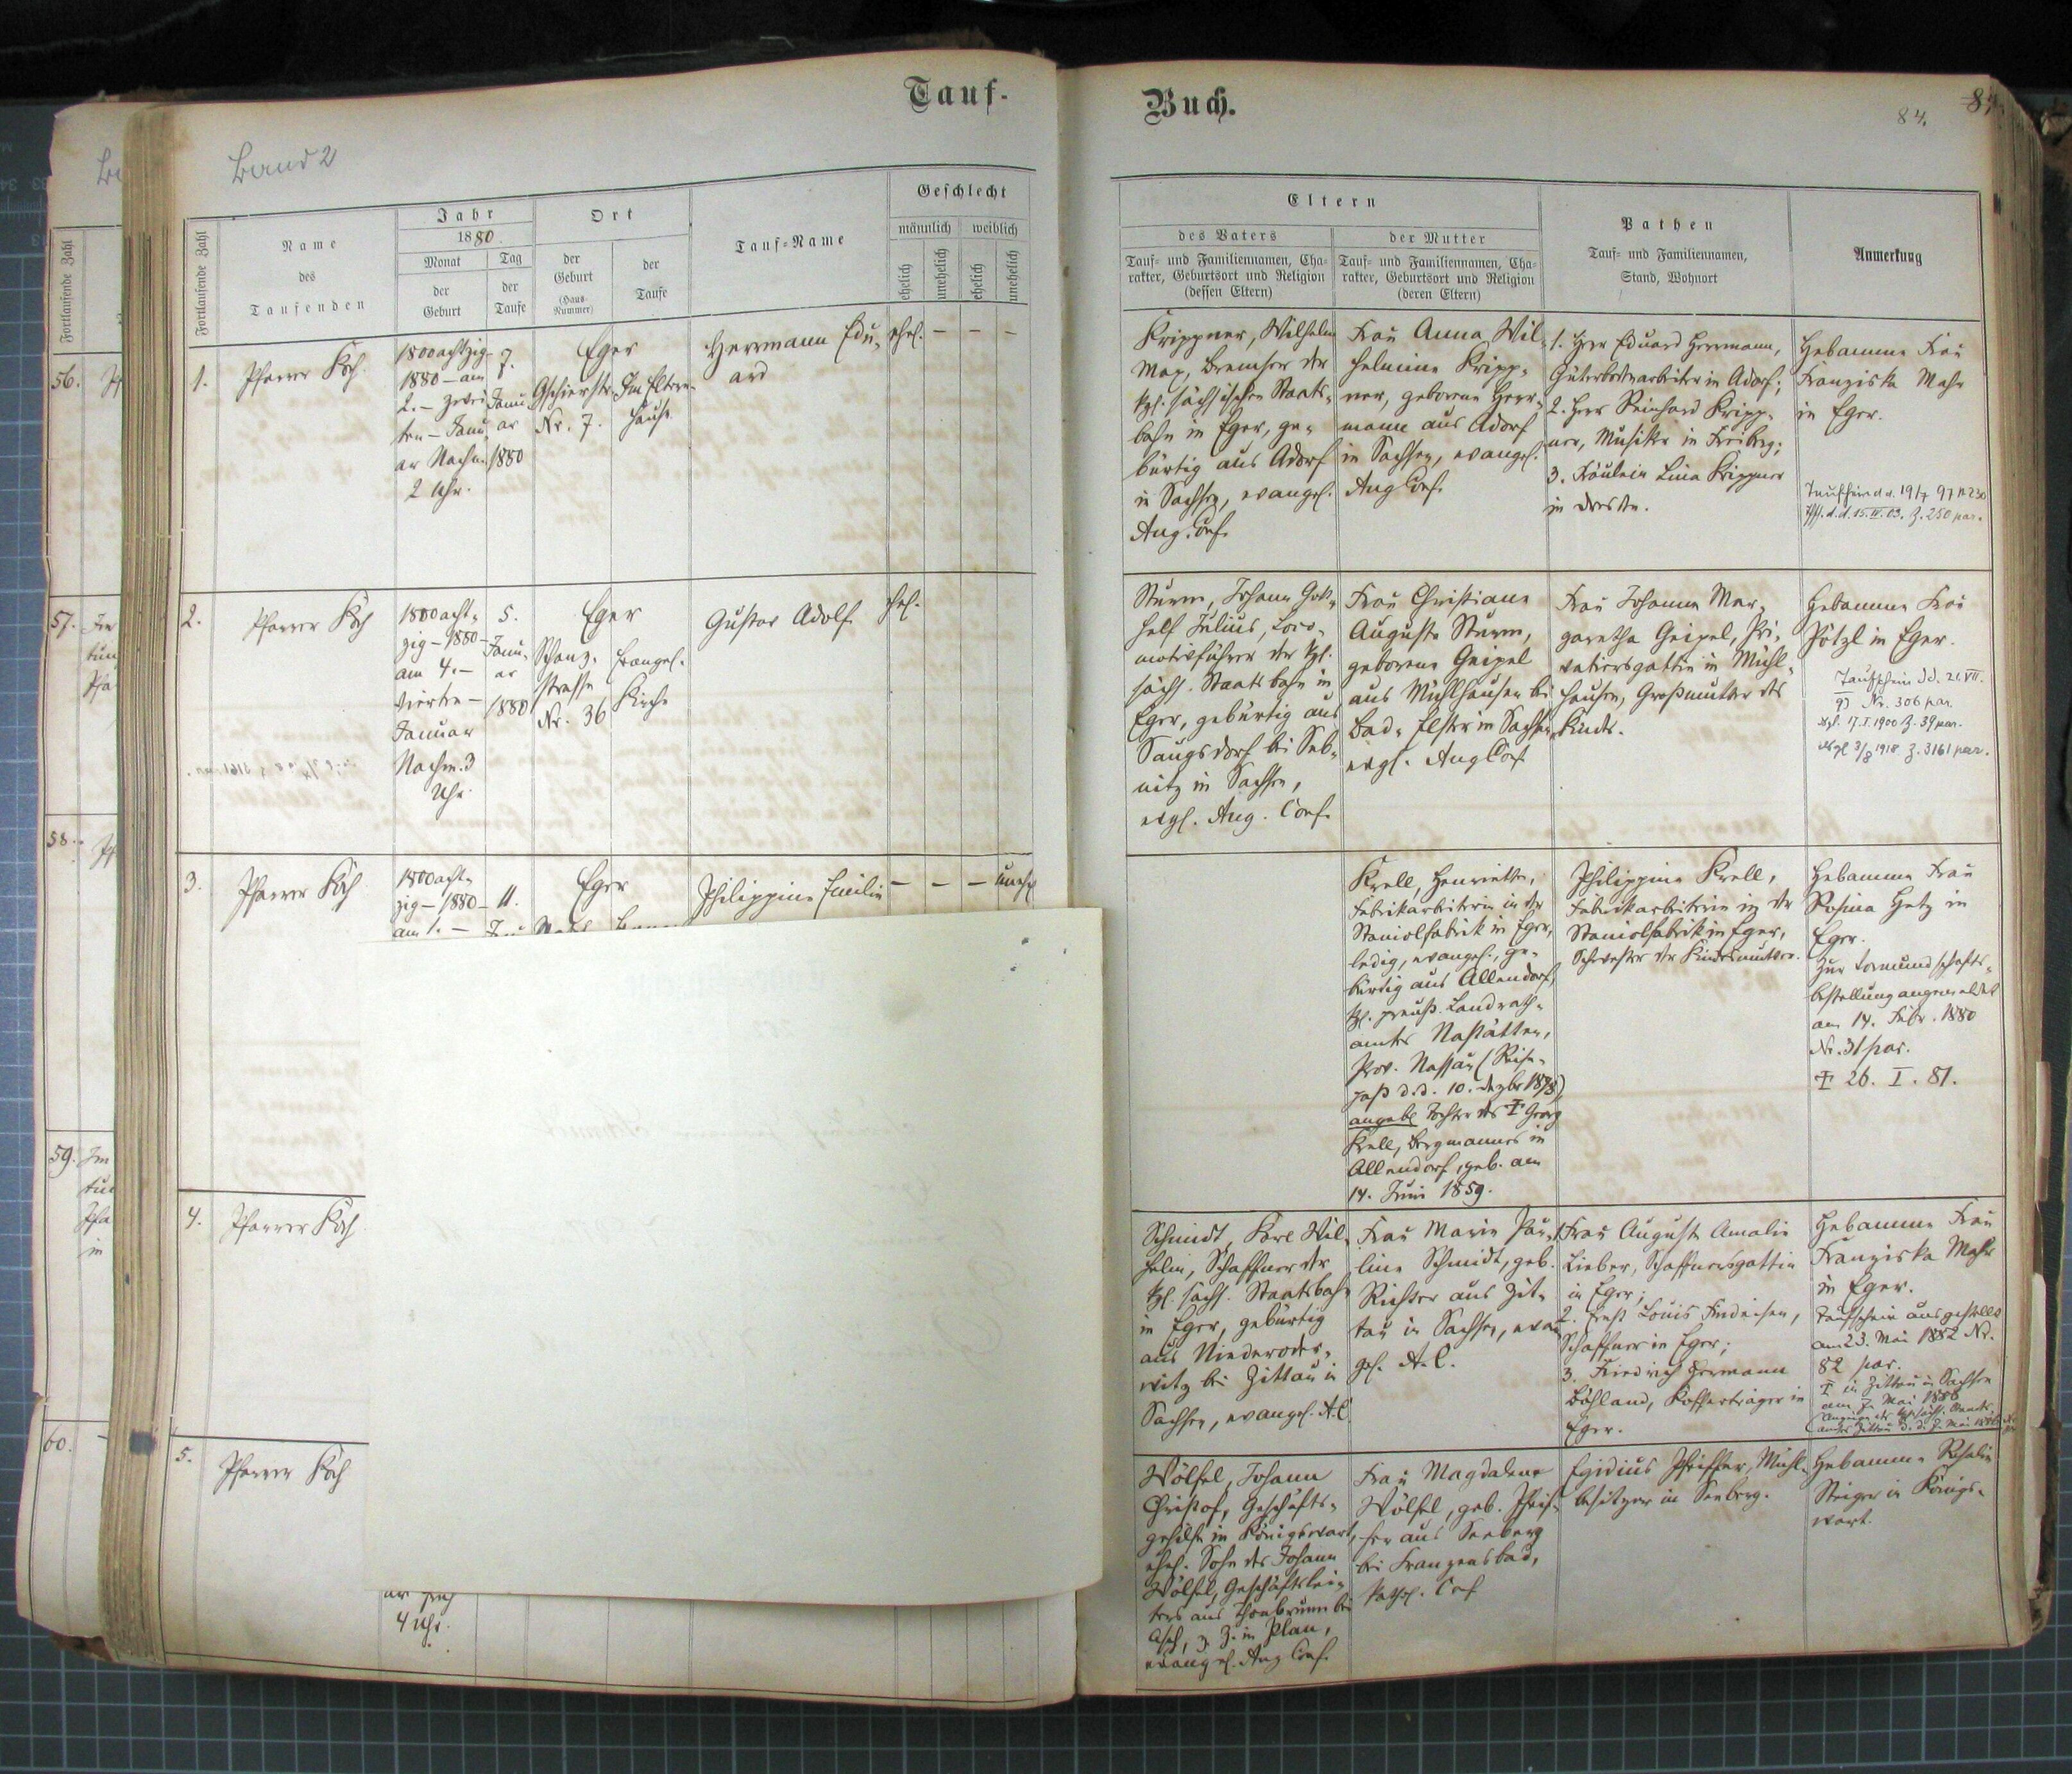 Tauf-
Buch.
84.
Band 2
Fortlaufende Zahl
Name
des
Taufenden
Jahr
1880.
Monat
der
Geburt
Tag
der
Taufe
Ort
der
Geburt
(Haus-
Nummer)
der
Taufe
Tauf-Name
Geschlecht
männlich
weiblich
ehelich
unehelich
ehelich
unehelich
Eltern
des Vaters
Tauf- und Familiennamen, Cha-
rakter, Geburtsort und Religion
(dessen Eltern)
der Mutter
Tauf- und Familiennamen, Cha-
rakter, Geburtsort und Religion
(deren Eltern)
Pathen
Tauf- und Familiennamen,
Stand, Wohnort
Anmerkung
Fortlaufende Zahl
56.
57.
58.
59.
60.
1.
Pfarrer Koch.
1800achtzig-
1880 - am
2. - zwei
ten - Janu-
ar Nachm.
2 Uhr.
7.
Janu-
ar
1880
Eger
Nr. 7.
Im Eltern-
hause
Herrmann Edu-
ard
ehel.
- - -
Krippner, Wilhelm
Max, Bremser der
kgl. sächsischen Staats-
bahn in Eger, ge-
bürtig aus Adorf
in Sachsen, evangel.
Aug. Conf.
Frau Anna Wil-
helmine Kripp-
ner, geborene Herr-
mann aus Adorf
in Sachsen, evangel.
Aug Conf.
1. Herr Eduard Herrmann,
Güterbodenarbeiter in Adorf;
2. Herr Reinhard Kripp-
ner, Musiker in Freiberg;
3. Fräulein Lina Krippner
in Dresden.
Hebamme Frau
Franziska Mahr
in Eger.
Taufschein d.d. 19/7 97 N 230
d.d. 15.IV.03. Z. 250 par.
2.
Pfarrer Koch
1800acht-
zig - 1880 -
am 4. -
vierten -
Januar
Nachm. 3
Uhr
5.
Janu-
ar
1880
Eger
Schanz-
strasse
Nr. 36
Evangel.
Kirche
Gustav Adolf
ehel.
Sturm, Johann Gott-
helf Julius, Loco-
motivführer der kgl.
sächs. Staatsbahn in
Eger, gebürtig aus
Saugsdorf bei Seb-
nitz in Sachsen,
evgl. Aug. Conf.
Frau Christiane
Auguste Sturm,
geborene Geipel
aus Mühlhausen bei
Bad-Elster in Sachsen
evgl. Aug Conf
Frau Johanne Mar-
garetha Geipel, Pri-
vatiersgattin in Mühl-
hausen, Großmutter des
Kindes.
Hebamme Frau
Pötzl in Eger.
Taufschein dd. 21.VII.
Nr. 306 par.
dgl. 17.I.1900 Z. 39 par.
dgl 3/8 1918 Z. 3161 par.
3.
Pfarrer Koch
1800acht-
zig - 1880 -
am 1. -
11.
Eger
Philippine Emilie
- - - unehel
Krell, Henriette,
Fabrikarbeiterin in der
Staniolfabrik in Eger,
ledig, evangel., ge-
bürtig aus Allendorf,
kgl. preuß. Landrath-
amtes Nastätten,
Prov. Nassau (Reise-
paß d.d. 10. Dezbr 1878),
angebl Tochter des † Georg
Krell, Bergmannes in
Allendorf, geb. am
14. Juni 1859.
Philippine Krell,
Fabrikarbeiterin in der
Staniolfabrik in Eger,
Schwester der Kindesmutter.
Hebamme Frau
Rosina Hetz in
Eger.
Zur Vormundschafts-
bestellung angemeldet
am 14. Febr. 1880
Nr. 31 par.
† 26. I. 81.
4.
Pfarrer Koch
Schmidt, Karl Wil-
helm, Schaffner der
kgl. sächs. Staatsbahn
in Eger, gebürtig
aus Niederoder-
witz bei Zittau in
Sachsen, evangel. A.C.
Frau Marie Pau-
line Schmidt, geb.
Richter aus Zit-
tau in Sachsen, evan
gel. A.C.
1. Frau Auguste Amalie
Lieber, Schaffnersgattin
in Eger;
2. Ernst Louis Findeisen,
Schaffner in Eger;
3. Friedrich Hermann
Böhland, Kofferträger in
Eger.
Hebamme Frau
Franziska Mahr
in Eger.
Taufschein ausgestellt
am 23. Mai 1882 Nr.
82 par.
† in Zittau in Sachsen
am 7. Mai 1886
5.
Pfarrer Koch
ar früh
4 Uhr.
Wölfel, Johann
Christof, Geschäfts-
gehilfe in Königswart,
ehel. Sohn des Johann
Wölfel, Geschäftslei-
ters aus Thonbrunn bei
Asch, z. Z. in Plan,
evangel. Aug Conf.
Frau Magdalena
Wölfel, geb. Pfeif-
fer aus Seeberg
bei Franzensbad,
kathol. Conf
Egidius Pfeiffer, Mühl-
besitzer in Seeberg.
Hebamme Rosalie
Steiger in Königs-
wart.